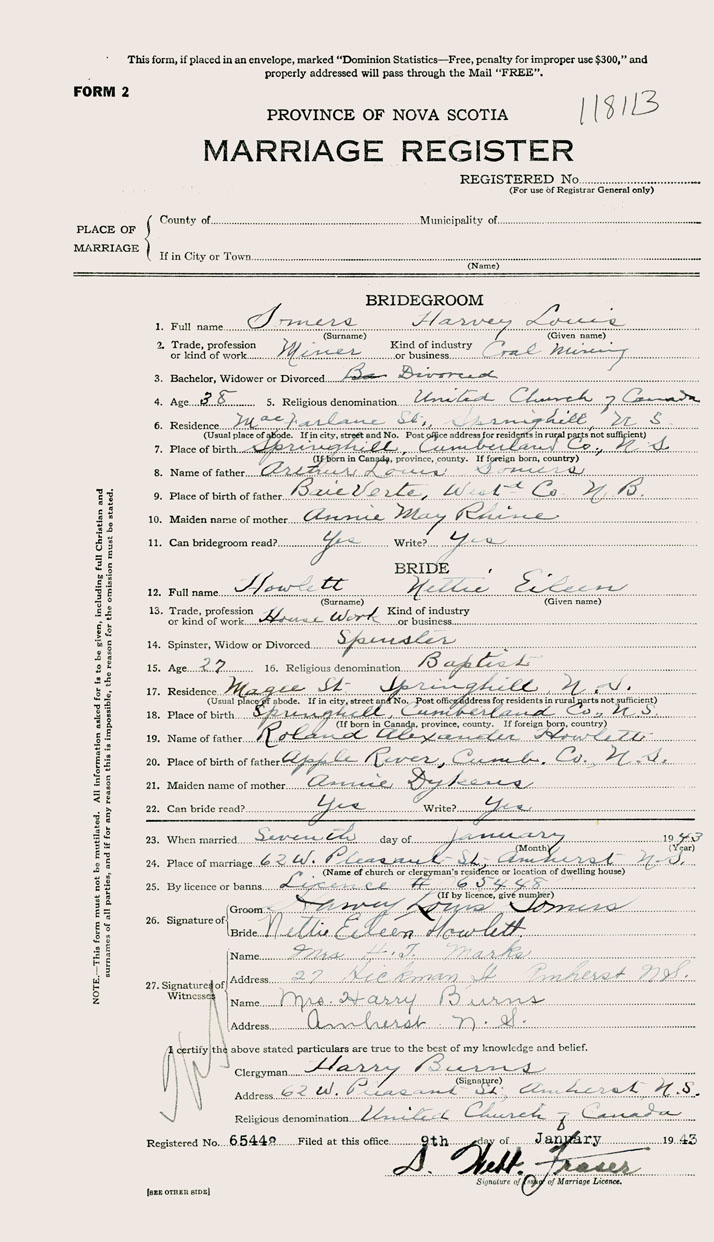 This form, if placed in an envelope, marked "Dominion Statistics—Free, penalty for improper use $300," and
properly addressed will pass through the Mail "FREE".
FORM 2
118113
PROVINCE OF NOVA SCOTIA
MARRIAGE REGISTER
REGISTERED No.
(For use of Registrar General only)
PLACE OF MARRIAGE
County of Municipality of
If in City or Town
(Name)
BRIDEGROOM
1. Full name Somers Harvey Louis
(Surname) (Given name)
2. Trade, profession or kind of work Miner Kind of industry or business Coal Mining
3. Bachelor, Widower or Divorced Ba Divorced
4. Age 38 5. Religious denomination United Church of Canada
6. Residence MacFarlane St., Springhill, N S
(Usual place of abode. If in city, street and No. Post office address for residents in rural parts not sufficient)
7. Place of birth Springhill, Cumberland Co., N S
(If born in Canada, province, county. If foreign born, country)
8. Name of father Arthur Louis Somers
9. Place of birth of father Baie Verte, West'd Co. N. B.
10. Maiden name of mother Annie May Rhine
11. Can bridegroom read? Yes Write? Yes
BRIDE
12. Full name Howlett Nettie Eileen
(Surname) (Given name)
13. Trade, profession or kind of work House Work Kind of industry or business
14. Spinster, Widow or Divorced Spinster
15. Age 27 16. Religious denomination Baptist
17. Residence Magee St Springhill, N. S.
(Usual place of abode. If in city, street and No. Post office address for residents in rural parts not sufficient)
18. Place of birth Springhill, Cumberland Co., N. S.
(If born in Canada, province, county. If foreign born, country)
19. Name of father Roland Alexander Howlett
20. Place of birth of father Apple River, Cumb. Co., N. S.
21. Maiden name of mother Annie Dykens
22. Can bride read? Yes Write? Yes
23. When married Seventh day of January 1943
(Month) (Year)
24. Place of marriage 62 W. Pleasant St., Amherst N.S.
(Name of church or clergyman's residence or location of dwelling house)
25. By licence or banns Licence # 65448
(If by licence, give number)
26. Signature of Groom Harvey Louis Somers
Bride Nettie Eileen Howlett
27. Signatures of Witnesses
Name Mrs H. J. Marks
Address 27 Hickman St Amherst N.S.
Name Mrs. Harry Burns
Address Amherst N. S.
I certify the above stated particulars are true to the best of my knowledge and belief.
Clergyman Harry Burns
(Signature)
Address 62 W. Pleasant St., Amherst, N.S.
Religious denomination United Church of Canada
Registered No. 65448 Filed at this office 9th day of January 1943
Fraser
Signature of Issuer of Marriage Licence.
[SEE OTHER SIDE]
NOTE.—This form must not be mutilated. All information asked for is to be given, including full Christian and
surnames of all parties, and if for any reason this is impossible, the reason for the omission must be stated.